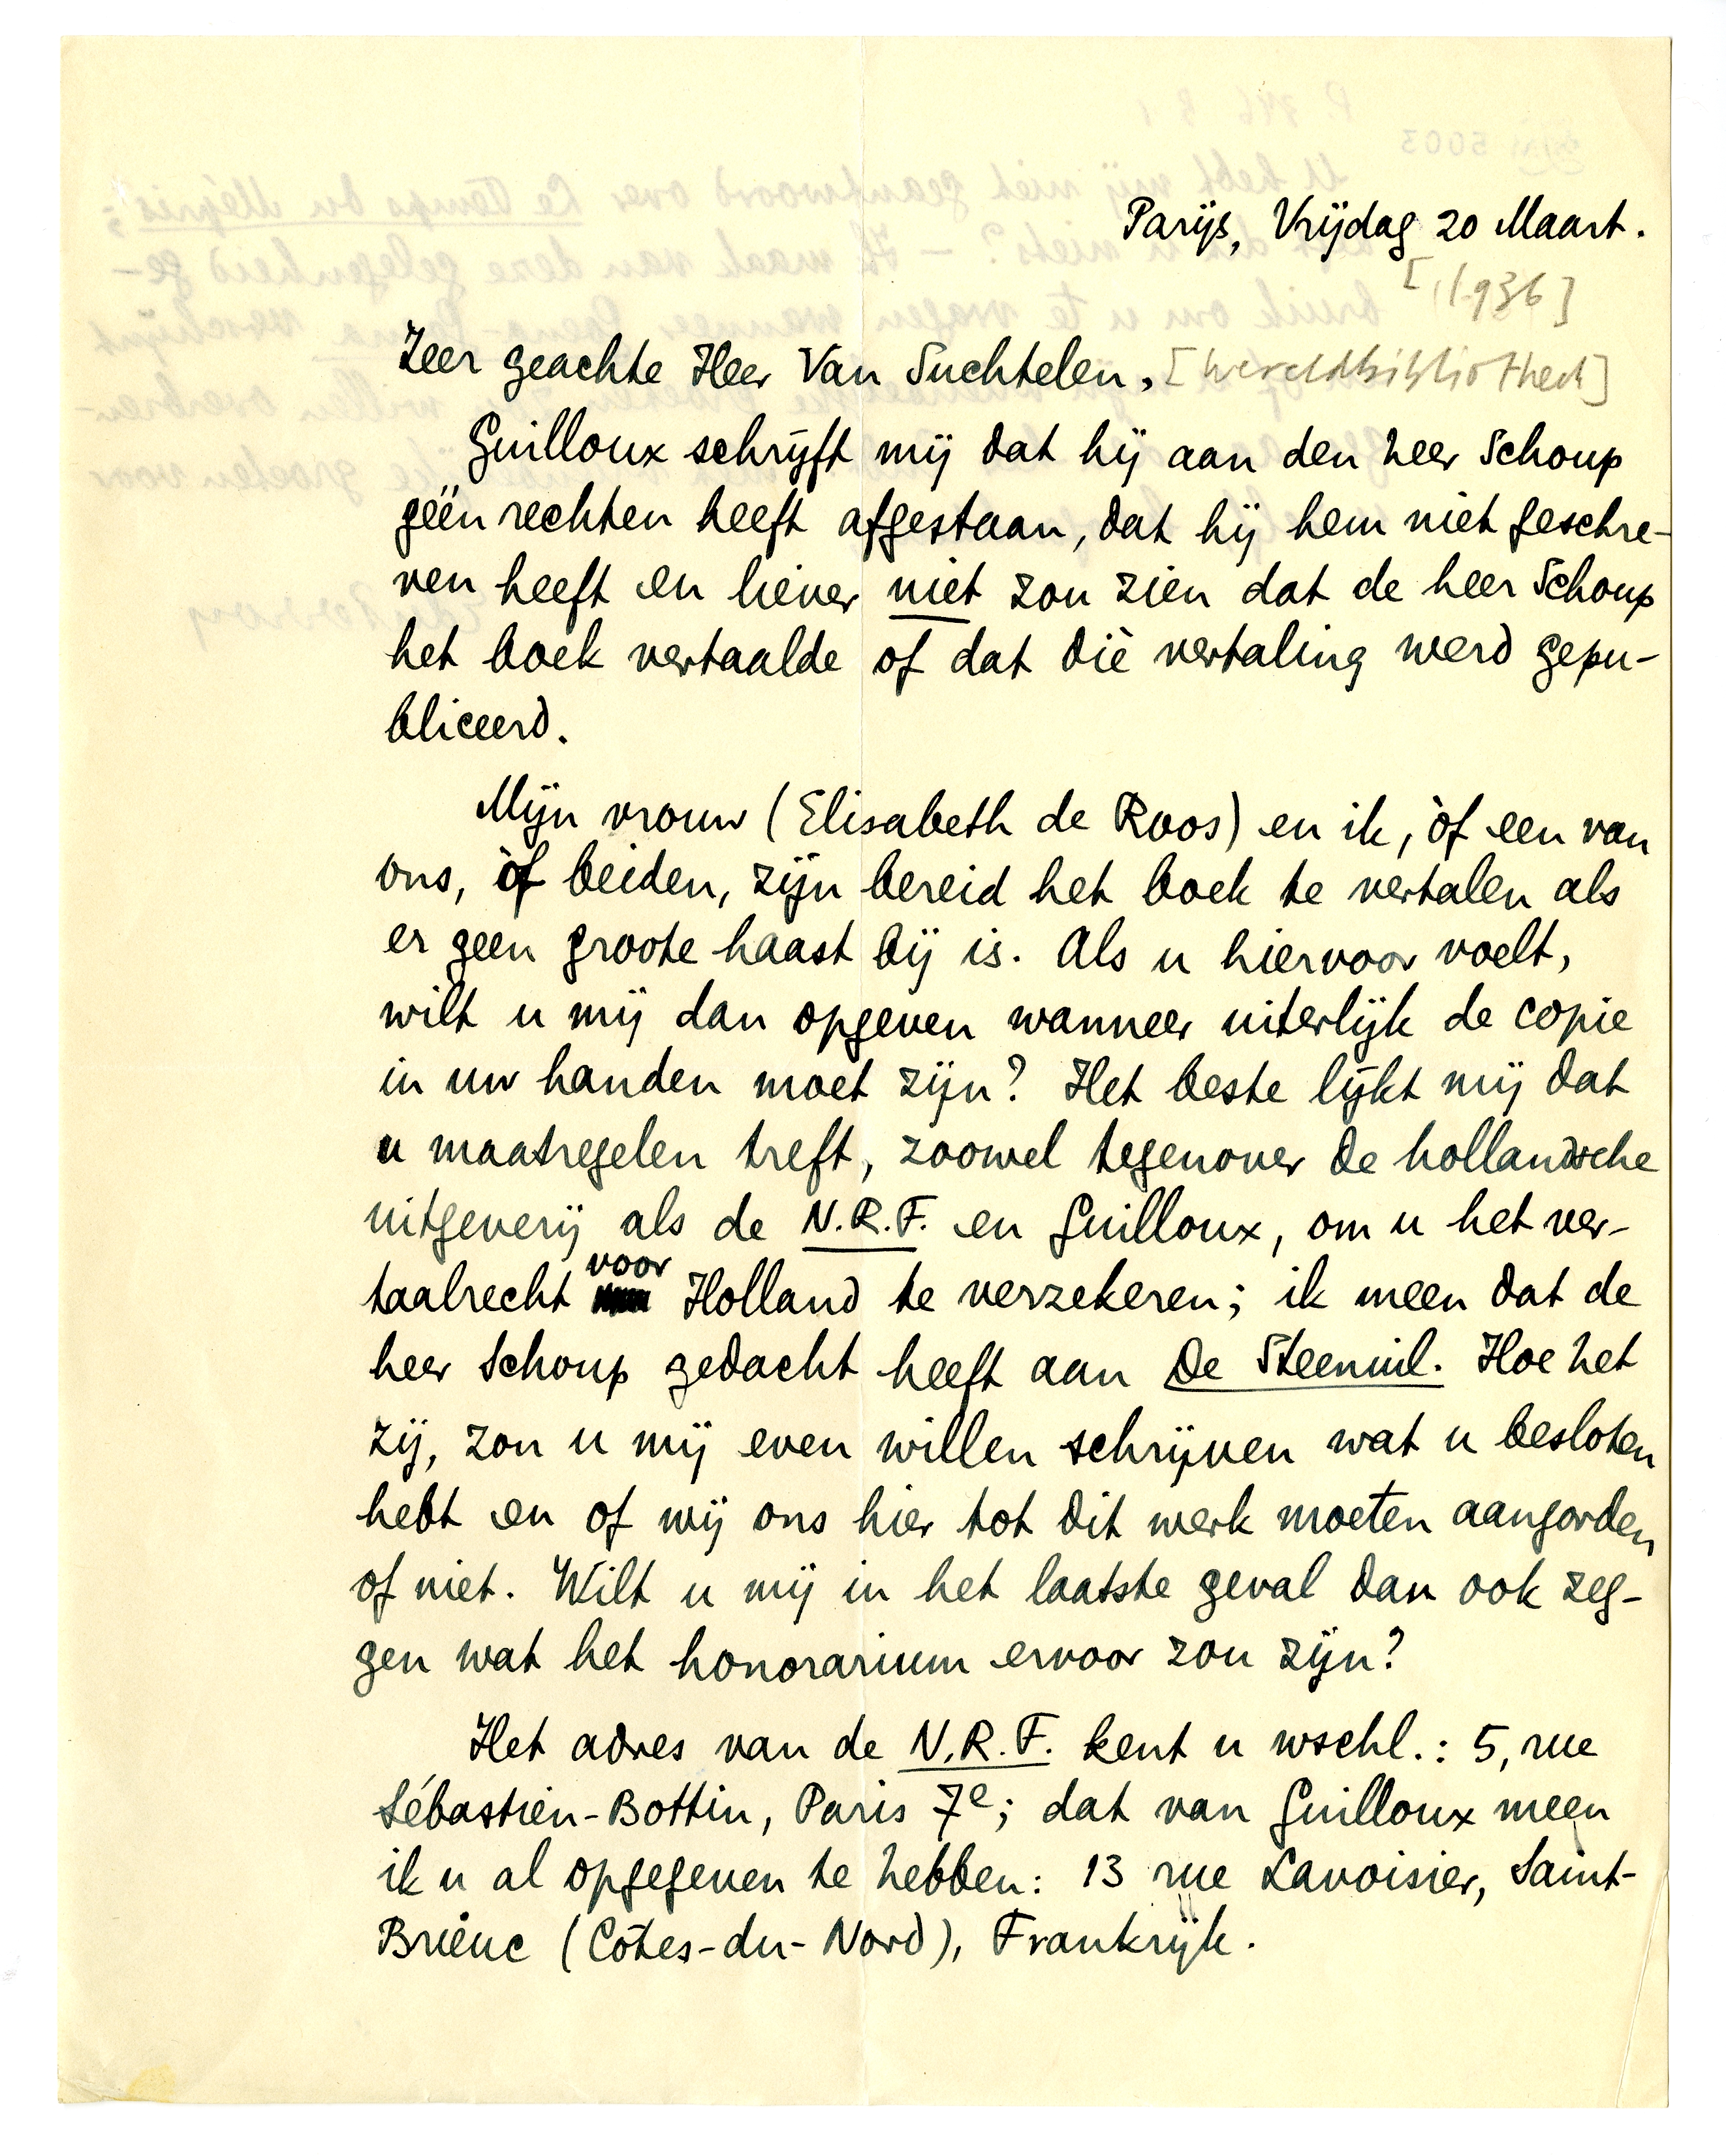 Parijs, Vrijdag 20 Maart.
[1936]
Zeer geachte Heer Van Suchtelen, [Wereldbibliotheek]
Guilloux schrijft mij dat hij aan den heer Schoup
géén rechten heeft afgestaan, dat hij hem niet geschre-
ven heeft en liever niet zou zien dat de heer Schoup
het boek vertaalde of dat díe vertaling werd gepu-
bliceerd.
Mijn vrouw (Elisabeth de Roos) en ik, òf een van
ons, òf beiden, zijn bereid het boek te vertalen als
er geen groote haast bij is. Als u hiervoor voelt,
wilt u mij dan opgeven wanneer uiterlijk de copie
in uw handen moet zijn? Het beste lijkt mij dat
u maatregelen treft, zoowel tegenover de hollandsche
uitgeverij als de N.R.F. en Guilloux, om u het ver-
taalrecht voor Holland te verzekeren; ik meen dat de
heer Schoup gedacht heeft aan De Steenuil. Hoe het
zij, zou u mij even willen schrijven wat u besloten
hebt en of wij ons hier tot dit werk moeten aangorden
of niet. Wilt u mij in het laatste geval dan ook zeg-
gen wat het honorarium ervoor zou zijn?
Het adres van de N.R.F. kent u wschl.: 5, rue
Sébastien-Bottin, Paris 7e; dat van Guilloux meen
ik u al opgegeven te hebben: 13 rue Lavoisier, Saint-
Brieuc (Côtes-du-Nord), Frankrijk.